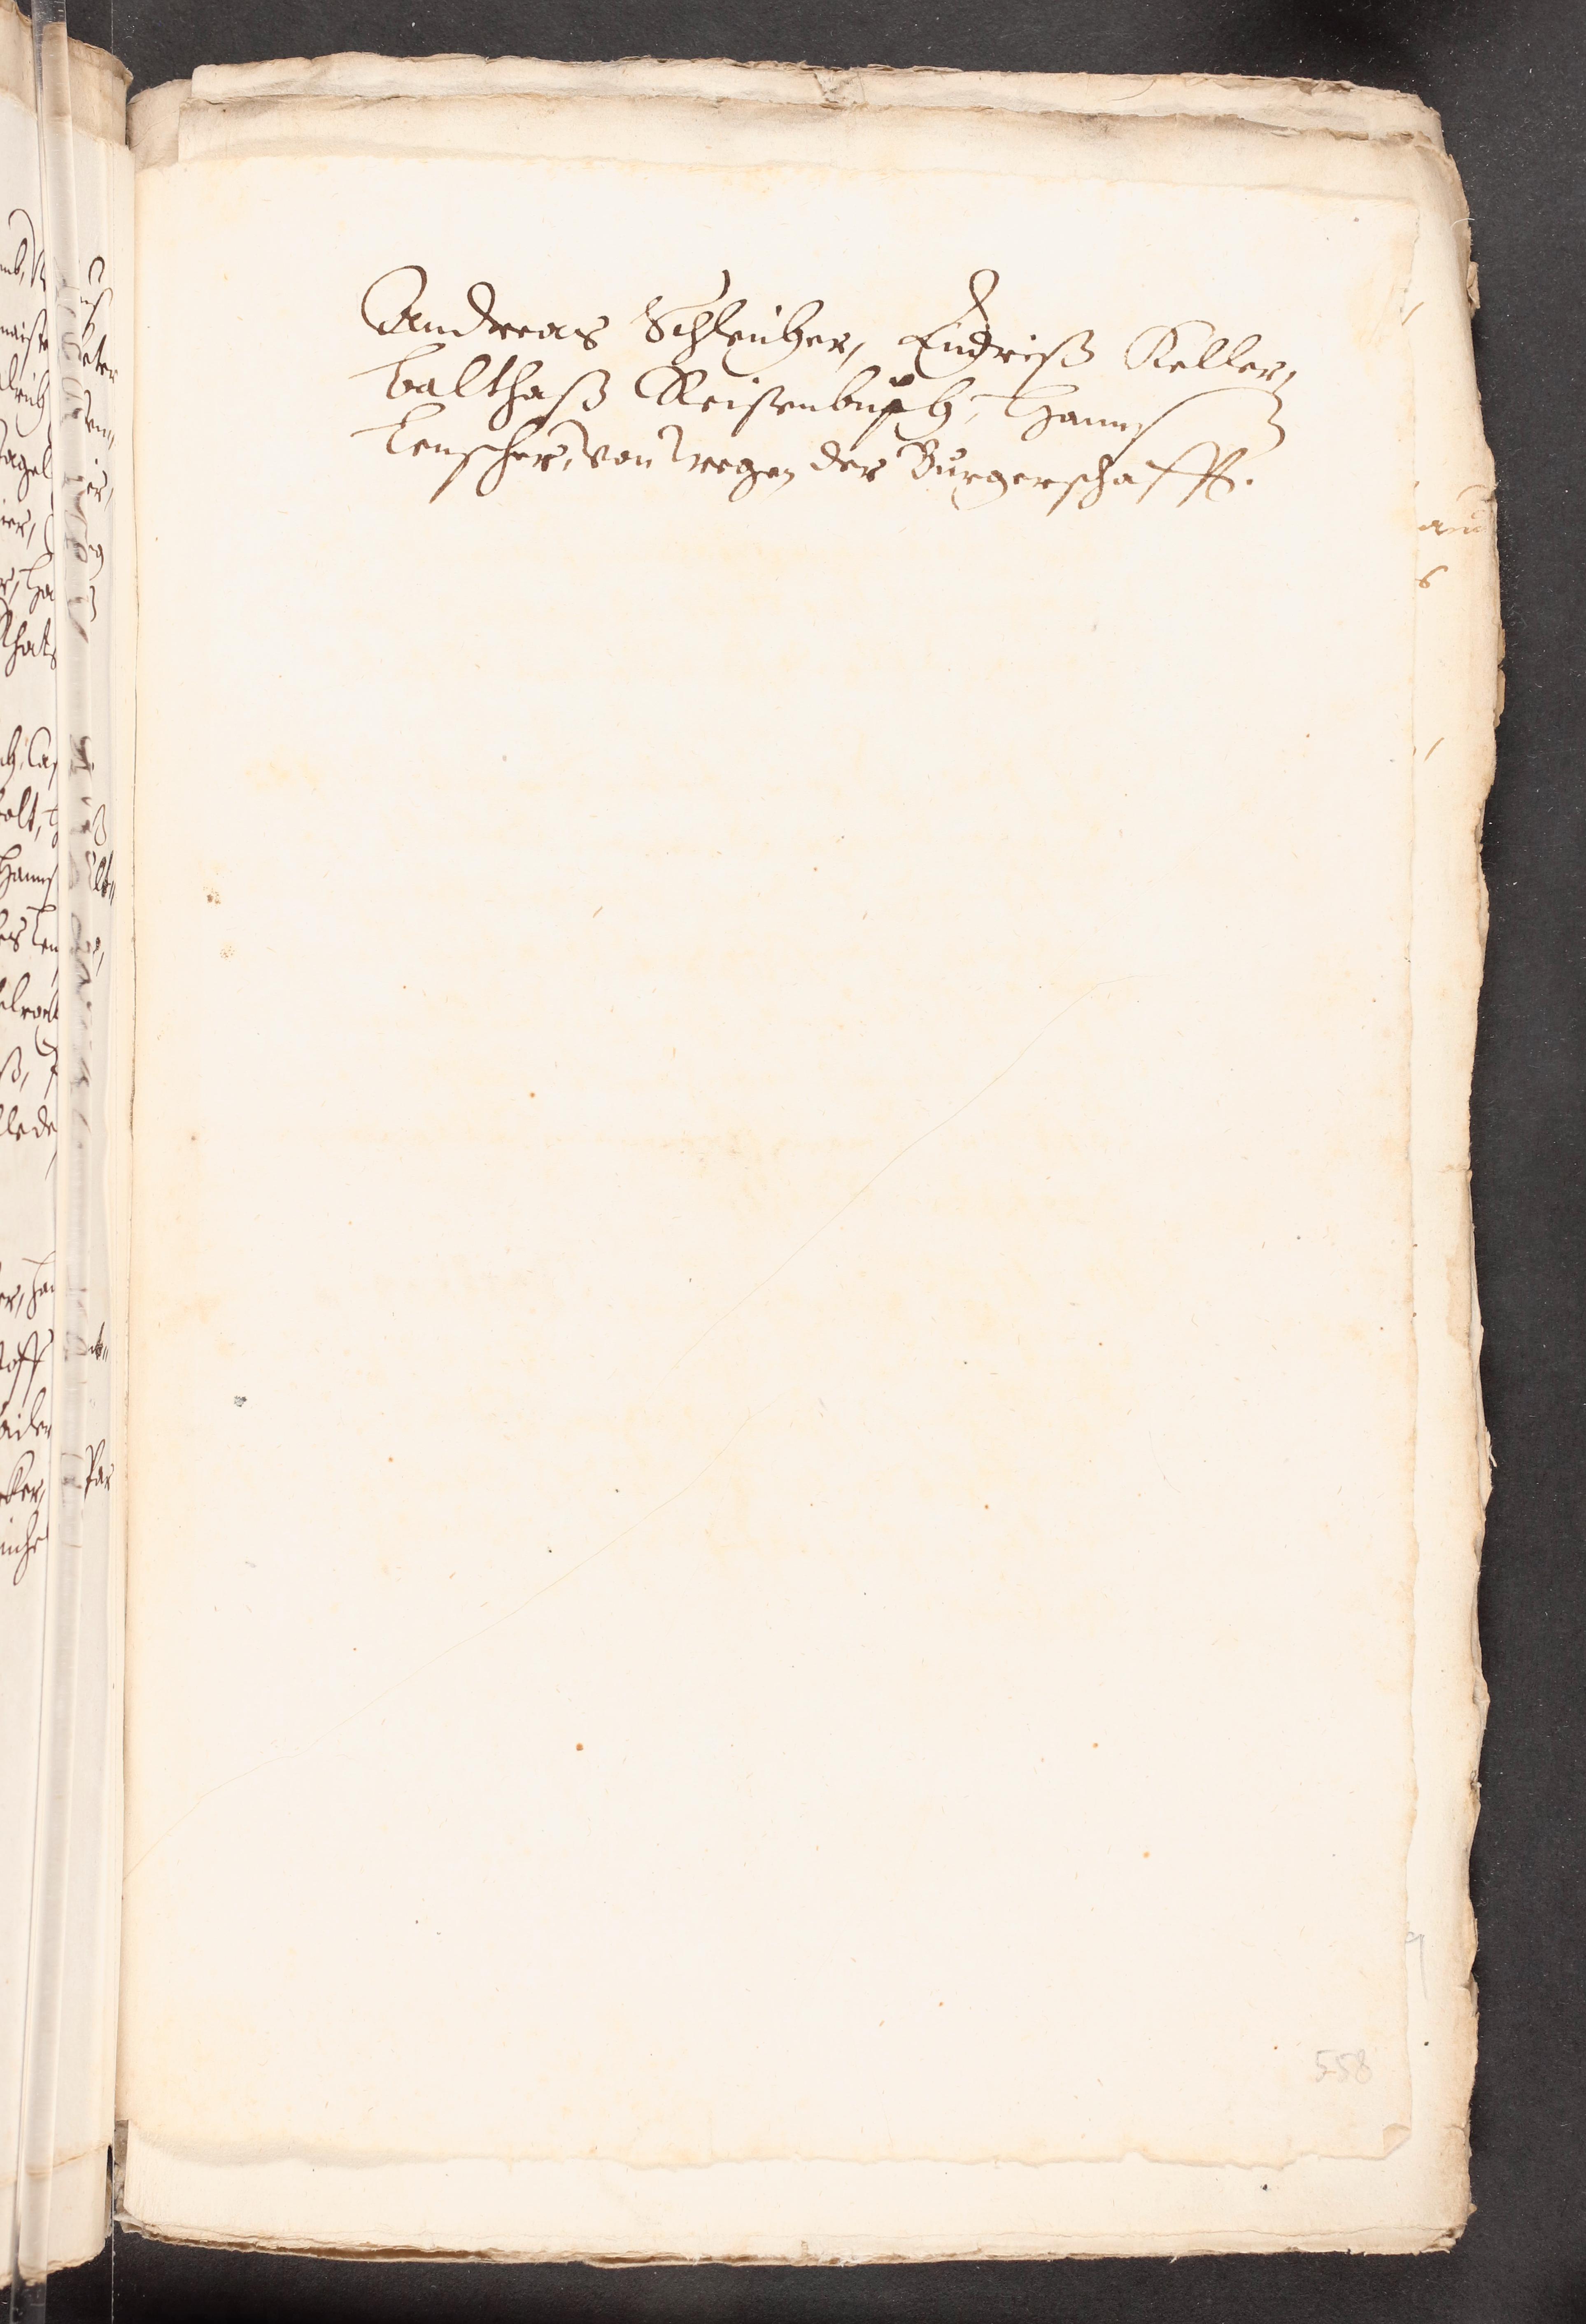 Andreas Schleicher, Endriß Keller,
Balthaß Reisenbusch, Hanns
Lenscher, von wegen der Burgerschafft.
558